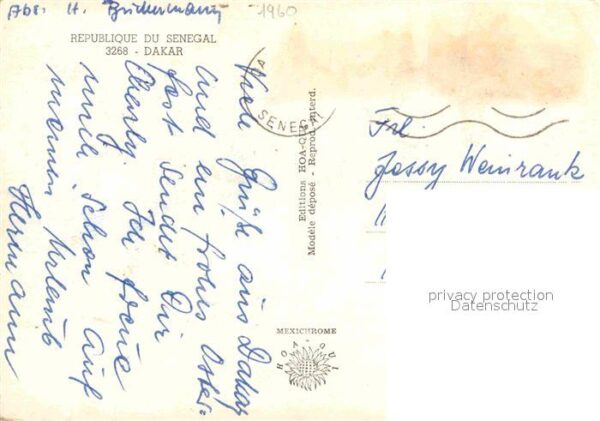 Abs: H. Brückermann
1960
REPUBLIQUE DU SENEGAL
3268 - DAKAR
Viele Grüße aus Dakar
und ein frohes Oster-
fest sendet Dir
Ich freue
mich schon auf
meinen Urlaub
Hermann
Editions HOA-QUI
Modèle déposé - Reprod. interd.
SENEGAL
MEXICHROME
HOA-QUI
Frl.
Jessy Weinrank
privacy protection
Datenschutz